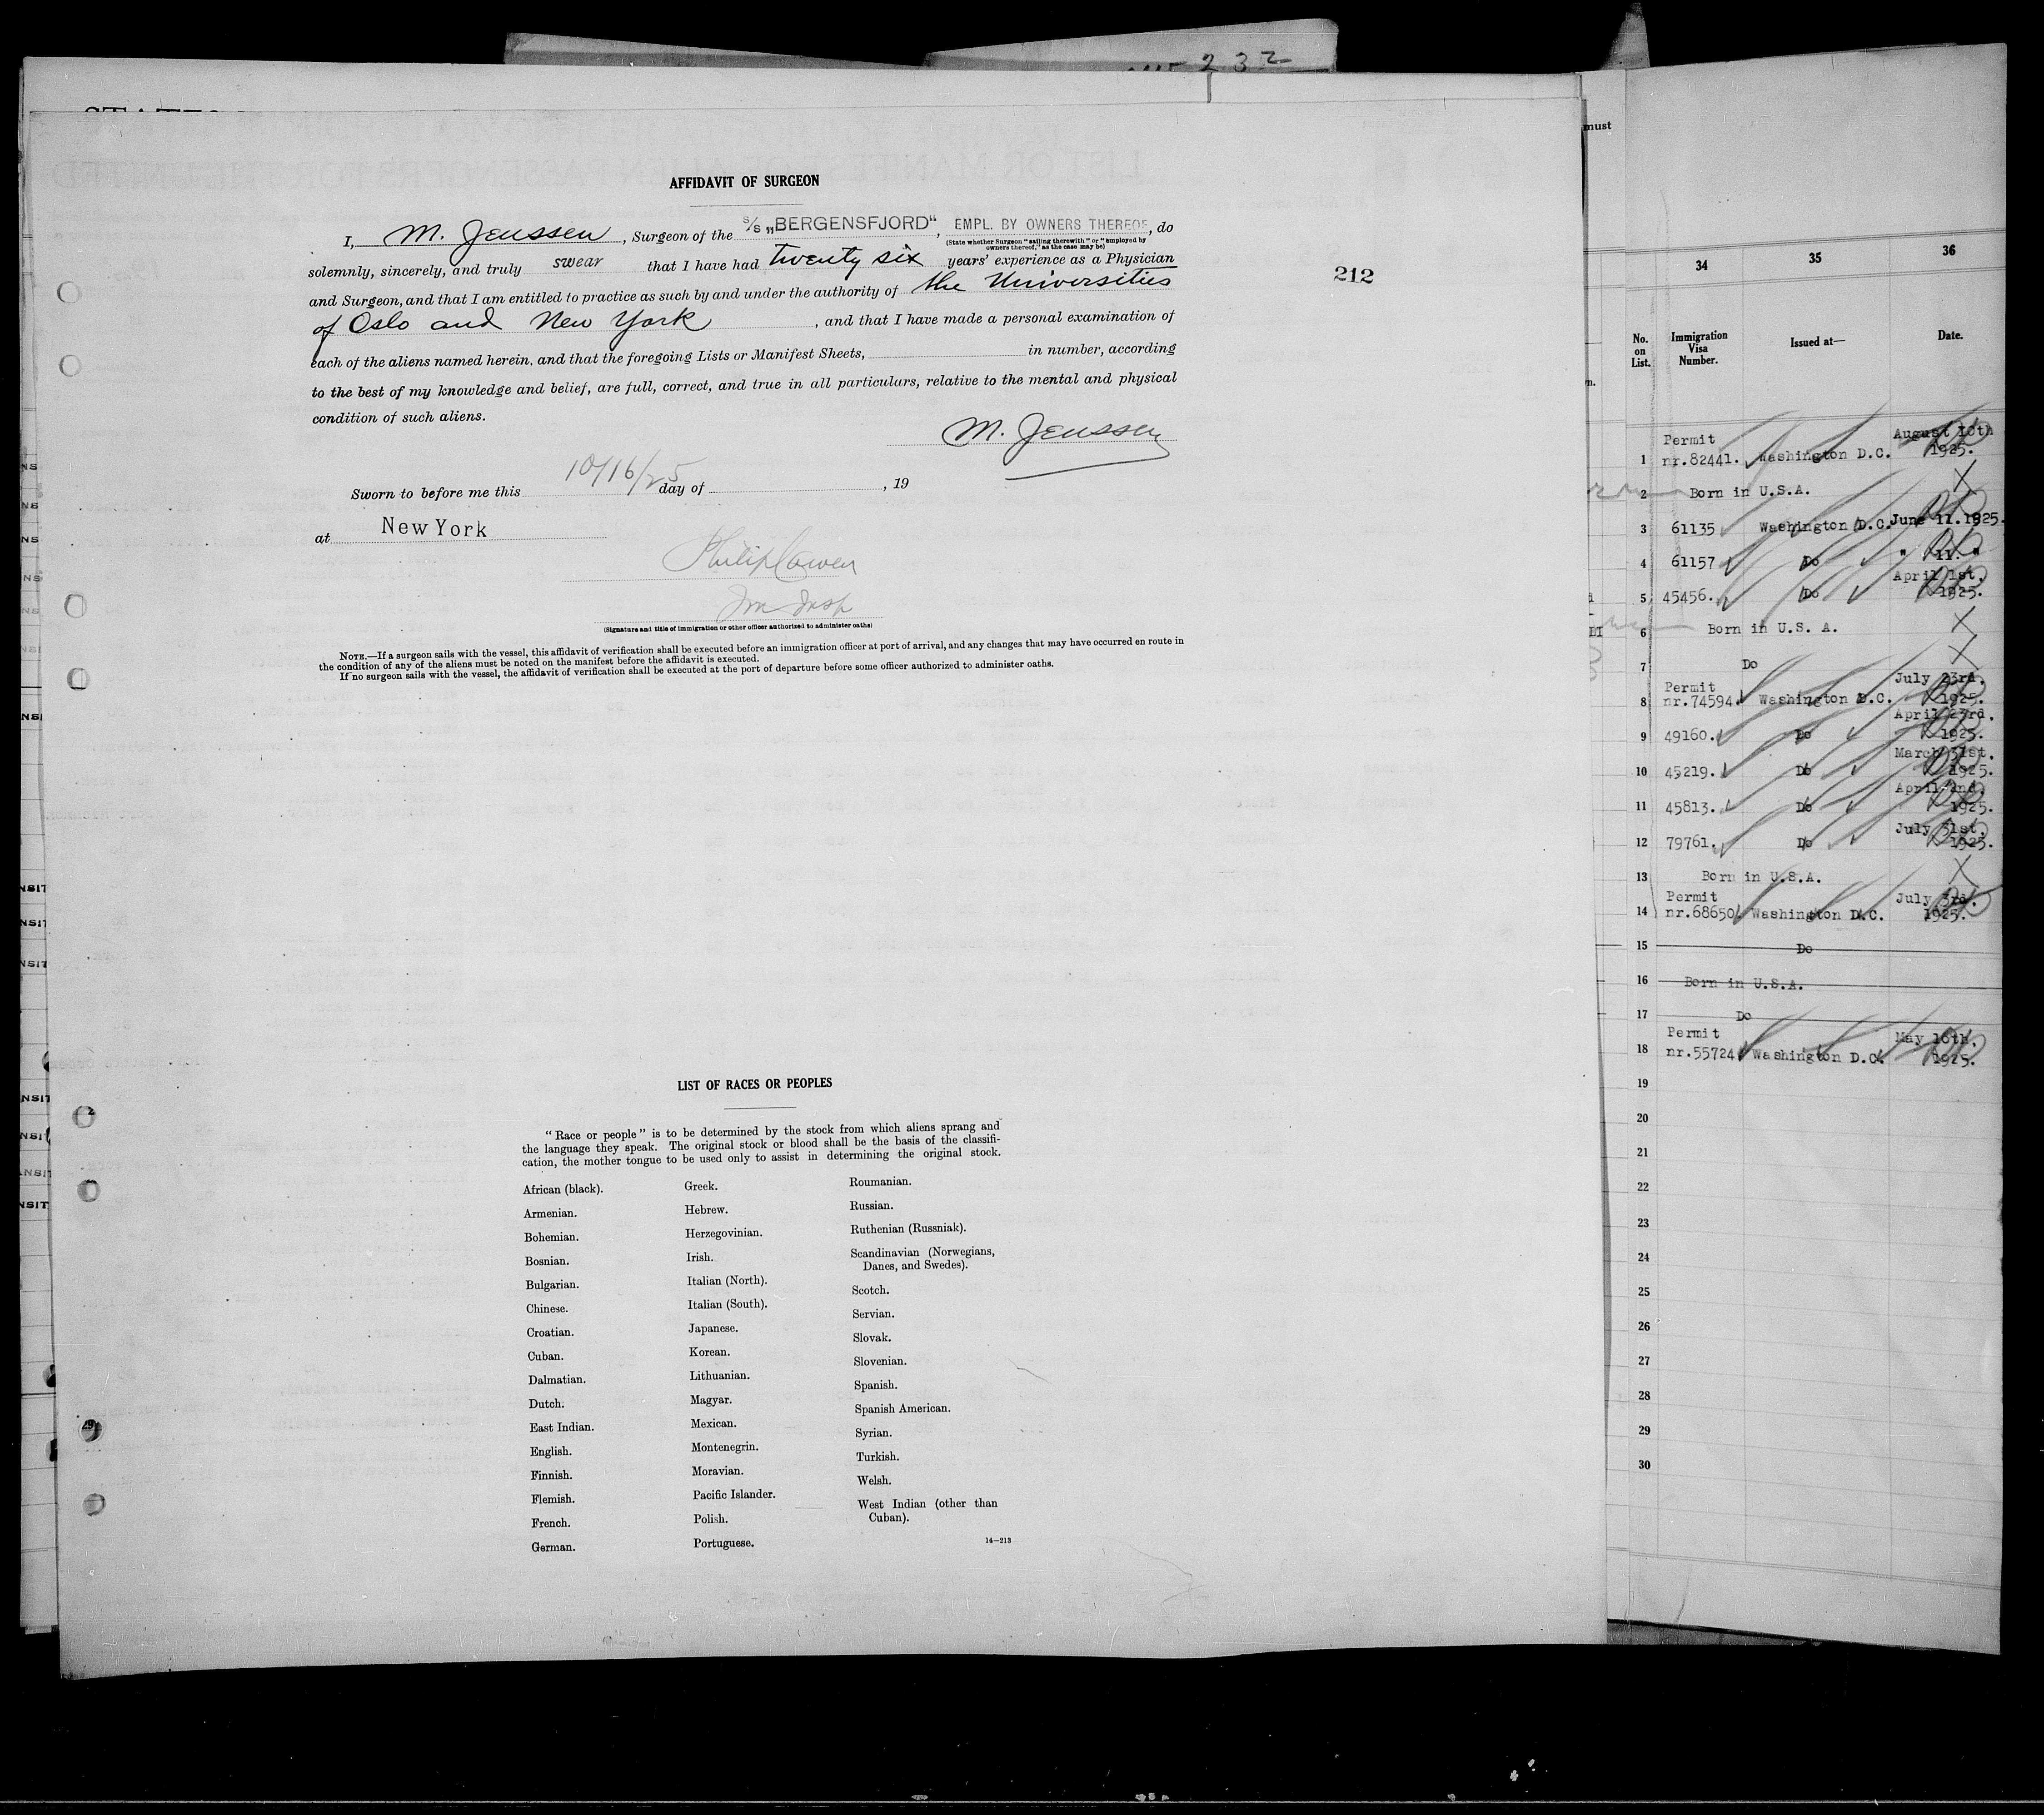 232
AFFIDAVIT OF SURGEON
I, M. Jenssen, Surgeon of the S/S „BERGENSFJORD", EMPL. BY OWNERS THEREOF, do
(State whether Surgeon "sailing therewith" or "employed by
owners thereof," as the case may be)
solemnly, sincerely, and truly swear that I have had twenty six years' experience as a Physician
and Surgeon, and that I am entitled to practice as such by and under the authority of the Universities
of Oslo and New York, and that I have made a personal examination of
each of the aliens named herein, and that the foregoing Lists or Manifest Sheets, in number, according
to the best of my knowledge and belief, are full, correct, and true in all particulars, relative to the mental and physical
condition of such aliens.
M. Jenssen
Sworn to before me this 10/16/25 day of , 19
at New York
Philip Cowen
Im Insp
(Signature and title of immigration or other officer authorized to administer oaths)
NOTE.—If a surgeon sails with the vessel, this affidavit of verification shall be executed before an immigration officer at port of arrival, and any changes that may have occurred en route in
the condition of any of the aliens must be noted on the manifest before the affidavit is executed.
If no surgeon sails with the vessel, the affidavit of verification shall be executed at the port of departure before some officer authorized to administer oaths.
212
LIST OF RACES OR PEOPLES
"Race or people" is to be determined by the stock from which aliens sprang and
the language they speak. The original stock or blood shall be the basis of the classifi-
cation, the mother tongue to be used only to assist in determining the original stock.
African (black).
Armenian.
Bohemian.
Bosnian.
Bulgarian.
Chinese.
Croatian.
Cuban.
Dalmatian.
Dutch.
East Indian.
English.
Finnish.
Flemish.
French.
German.
Greek.
Hebrew.
Herzegovinian.
Irish.
Italian (North).
Italian (South).
Japanese.
Korean.
Lithuanian.
Magyar.
Mexican.
Montenegrin.
Moravian.
Pacific Islander.
Polish.
Portuguese.
Roumanian.
Russian.
Ruthenian (Russniak).
Scandinavian (Norwegians,
Danes, and Swedes).
Scotch.
Servian.
Slovak.
Slovenian.
Spanish.
Spanish American.
Syrian.
Turkish.
Welsh.
West Indian (other than
Cuban).
14—213
must
34 35 36
No. on List. Immigration Visa Number. Issued at— Date.
1 Permit nr.82441. Washington D.C. August 10th 1925.
2 Born in U.S.A. X
3 61135 Washington D.C. June 11.1925.
4 61157 Do " 11. "
5 45456. Do April 1st. 1925.
6 Born in U.S. A. X
7 Do X
8 Permit nr.74594. Washington D.C. July 23rd. 1925.
9 49160. Do April 23rd. 1925.
10 45219. Do March 31st. 1925.
11 45813. Do April 2nd. 1925.
12 79761. Do July 31st. 1925.
13 Born in U.S.A. X
14 Permit nr.68650. Washington D.C. July 3rd. 1925.
15 Do
16 Born in U.S.A.
17 Do
18 Permit nr.55724 Washington D.C. May 16th. 1925.
19
20
21
22
23
24
25
26
27
28
29
30